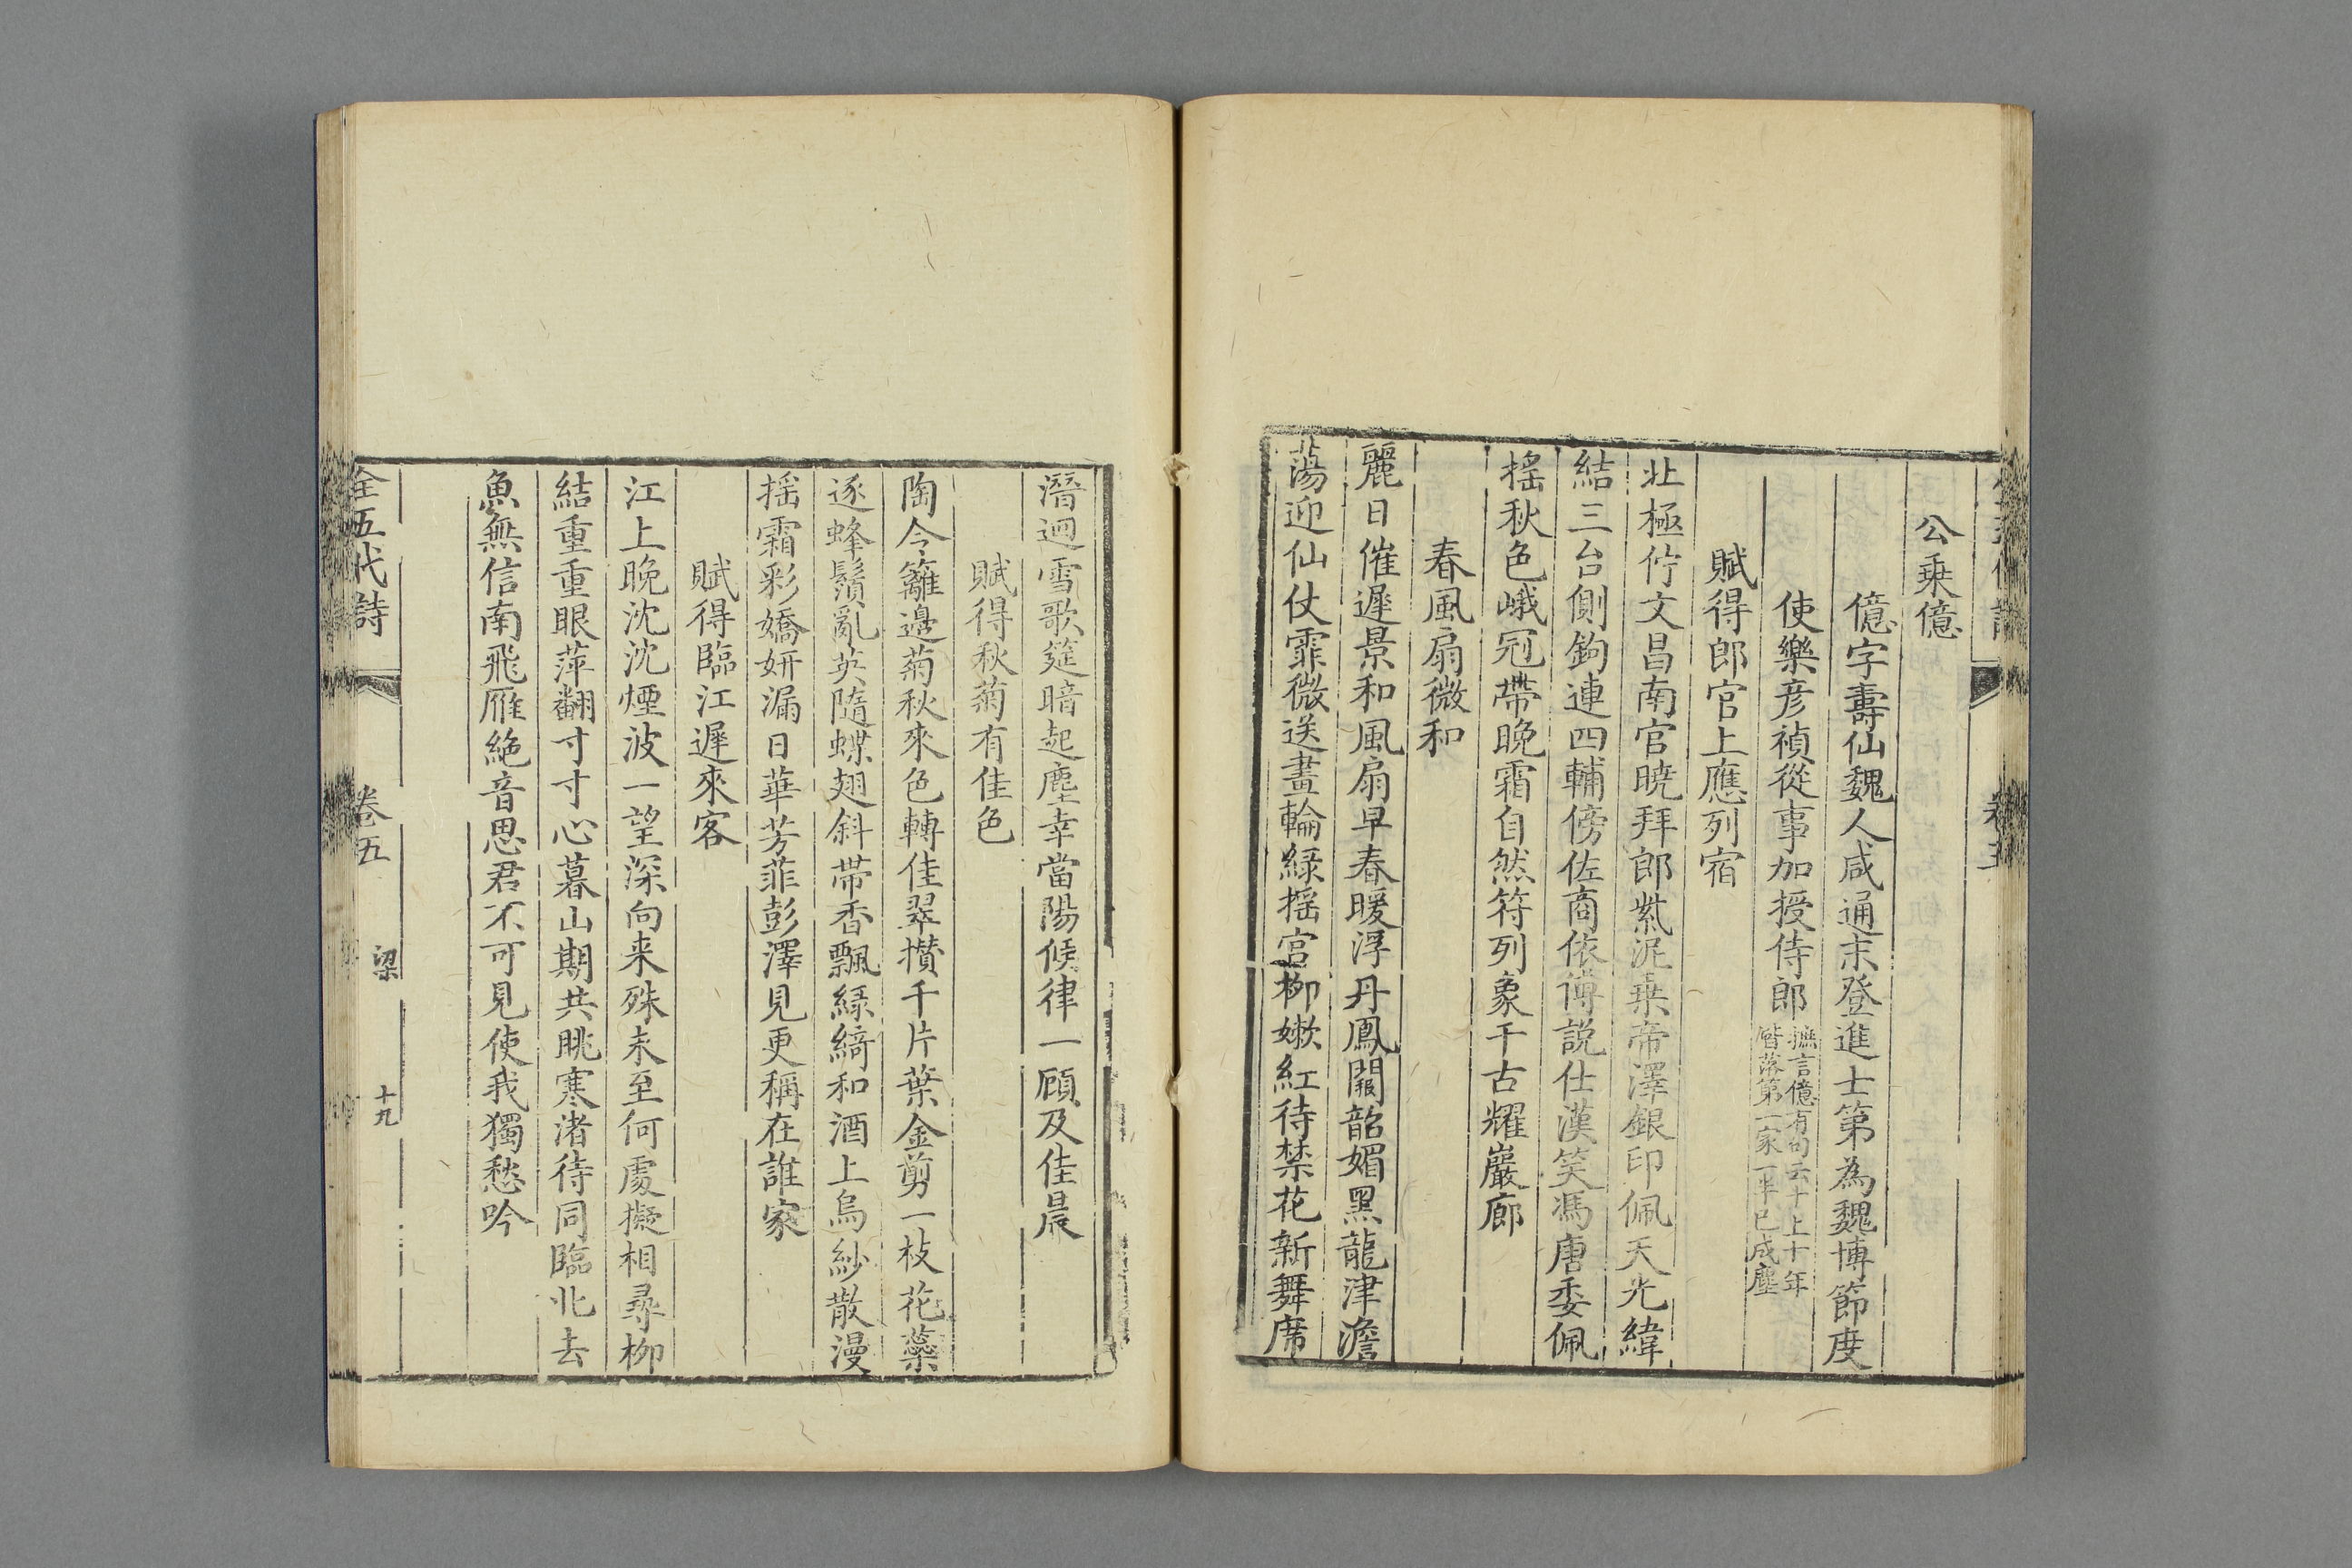 公乘億
億字壽仙魏人咸通末登進士第為魏博節度
使樂彦禎從事加授侍郎摭言億有句云十上十年
皆落第一家一半已成塵
賦得郎官上應列宿
北極佇文昌南官曉拜郎紫泥乗帝澤銀印佩天光緯
結三台側鉤連四輔傍佐商依傅説仕漢笑馮唐委佩
搖秋色峨冠帶晚霜自然符列象千古耀巖廊
春風扇微和
麗日催遲景和風扇早春暖浮丹鳳闕韶媚黑龍津澹
蕩迎仙仗霏微送畫輪緑搖宫柳嫩紅待禁花新舞席
潛迴雪歌筵暗起塵幸當陽候律一顧及佳晨
賦得秋菊有佳色
陶令籬邊菊秋來色轉佳翠攅千片葉金剪一枝花蘂
逐蜂鬚亂英隨蝶翅斜帶香飄緑綺和酒上烏紗散漫
搖霜彩嬌妍漏日華芳菲彭澤見更稱在誰家
賦得臨江遲來客
江上晚沈沈煙波一望深向来殊未至何處擬相尋柳
結重重眼萍翻寸寸心暮山期共眺寒渚待同臨北去
魚無信南飛雁絶音思君不可見使我獨愁吟
全五代詩 卷五 梁 十九